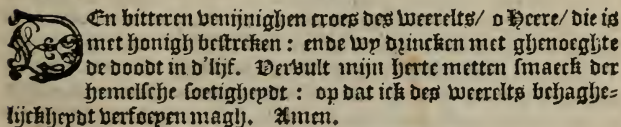 DEn bitteren venijnighen croes des weerelts/ o Heere/ die is
met honigh bestreken: ende wy drincken met ghenoeghte
de doodt in d'lijf. Vervult mijn herte metten smaeck der
hemelsche soetigheydt: op dat ick des weerelts behaghe-
lijckheydt versoeyen magh. Amen.